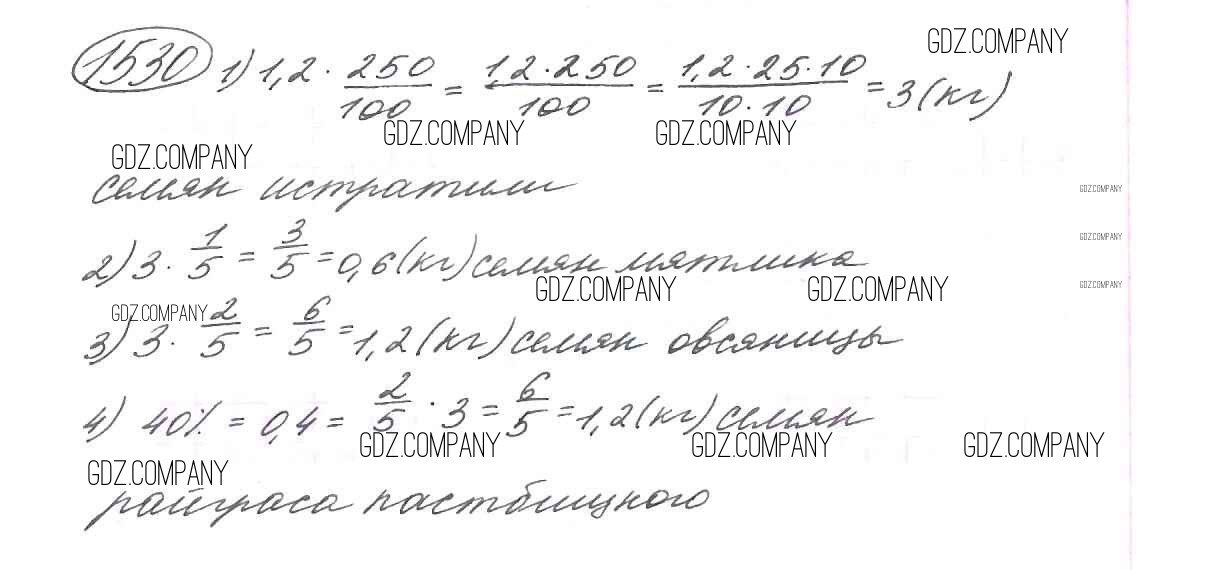 GDZ.COMPANY
1530 1) 1,2 · 250/100 = 1,2·250/100 = 1,2·25·10/10·10 = 3 (кг)
GDZ.COMPANY GDZ.COMPANY
GDZ.COMPANY
семян истратили
GDZ.COMPANY
2) 3 · 1/5 = 3/5 = 0,6 (кг) семян мятлика
GDZ.COMPANY
GDZ.COMPANY GDZ.COMPANY GDZ.COMPANY
GDZ.COMPANY
3) 3 · 2/5 = 6/5 = 1,2 (кг) семян овсяницы
4) 40% = 0,4 = 2/5 · 3 = 6/5 = 1,2 (кг) семян
GDZ.COMPANY GDZ.COMPANY GDZ.COMPANY
GDZ.COMPANY
райграса пастбищного